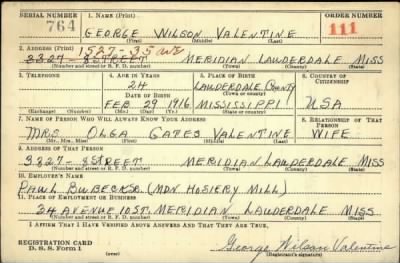 SERIAL NUMBER 1. NAME (Print) ORDER NUMBER
764 GEORGE WILSON VALENTINE 111
(First) (Middle) (Last)
2. ADDRESS (Print) 1527-35 AVE
3327 - 8 STREET MERIDIAN LAUDERDALE MISS
(Number and street or R. F. D. number) (Town) (County) (State)
3. TELEPHONE 4. AGE IN YEARS 5. PLACE OF BIRTH 6. COUNTRY OF CITIZENSHIP
24 LAUDERDALE COUNTY
DATE OF BIRTH (Town or county)
FEB 29 1916 MISSISSIPPI USA
(Exchange) (Number) (Mo.) (Day) (Yr.) (State or country)
7. NAME OF PERSON WHO WILL ALWAYS KNOW YOUR ADDRESS 8. RELATIONSHIP OF THAT PERSON
MRS OLGA GATES VALENTINE WIFE
(Mr., Mrs., Miss) (First) (Middle) (Last)
9. ADDRESS OF THAT PERSON
3327 - 8 STREET MERIDIAN LAUDERDALE MISS
(Number and street or R. F. D. number) (Town) (County) (State)
10. EMPLOYER'S NAME
PAUL (MDN HOSIERY MILL)
11. PLACE OF EMPLOYMENT OR BUSINESS
24 AVENUE 10 ST. MERIDIAN LAUDERDALE MISS
(Number and street or R. F. D. number) (Town) (County) (State)
I AFFIRM THAT I HAVE VERIFIED ABOVE ANSWERS AND THAT THEY ARE TRUE.
REGISTRATION CARD George Wilson Valentine
D. S. S. Form 1 (Registrant's signature)